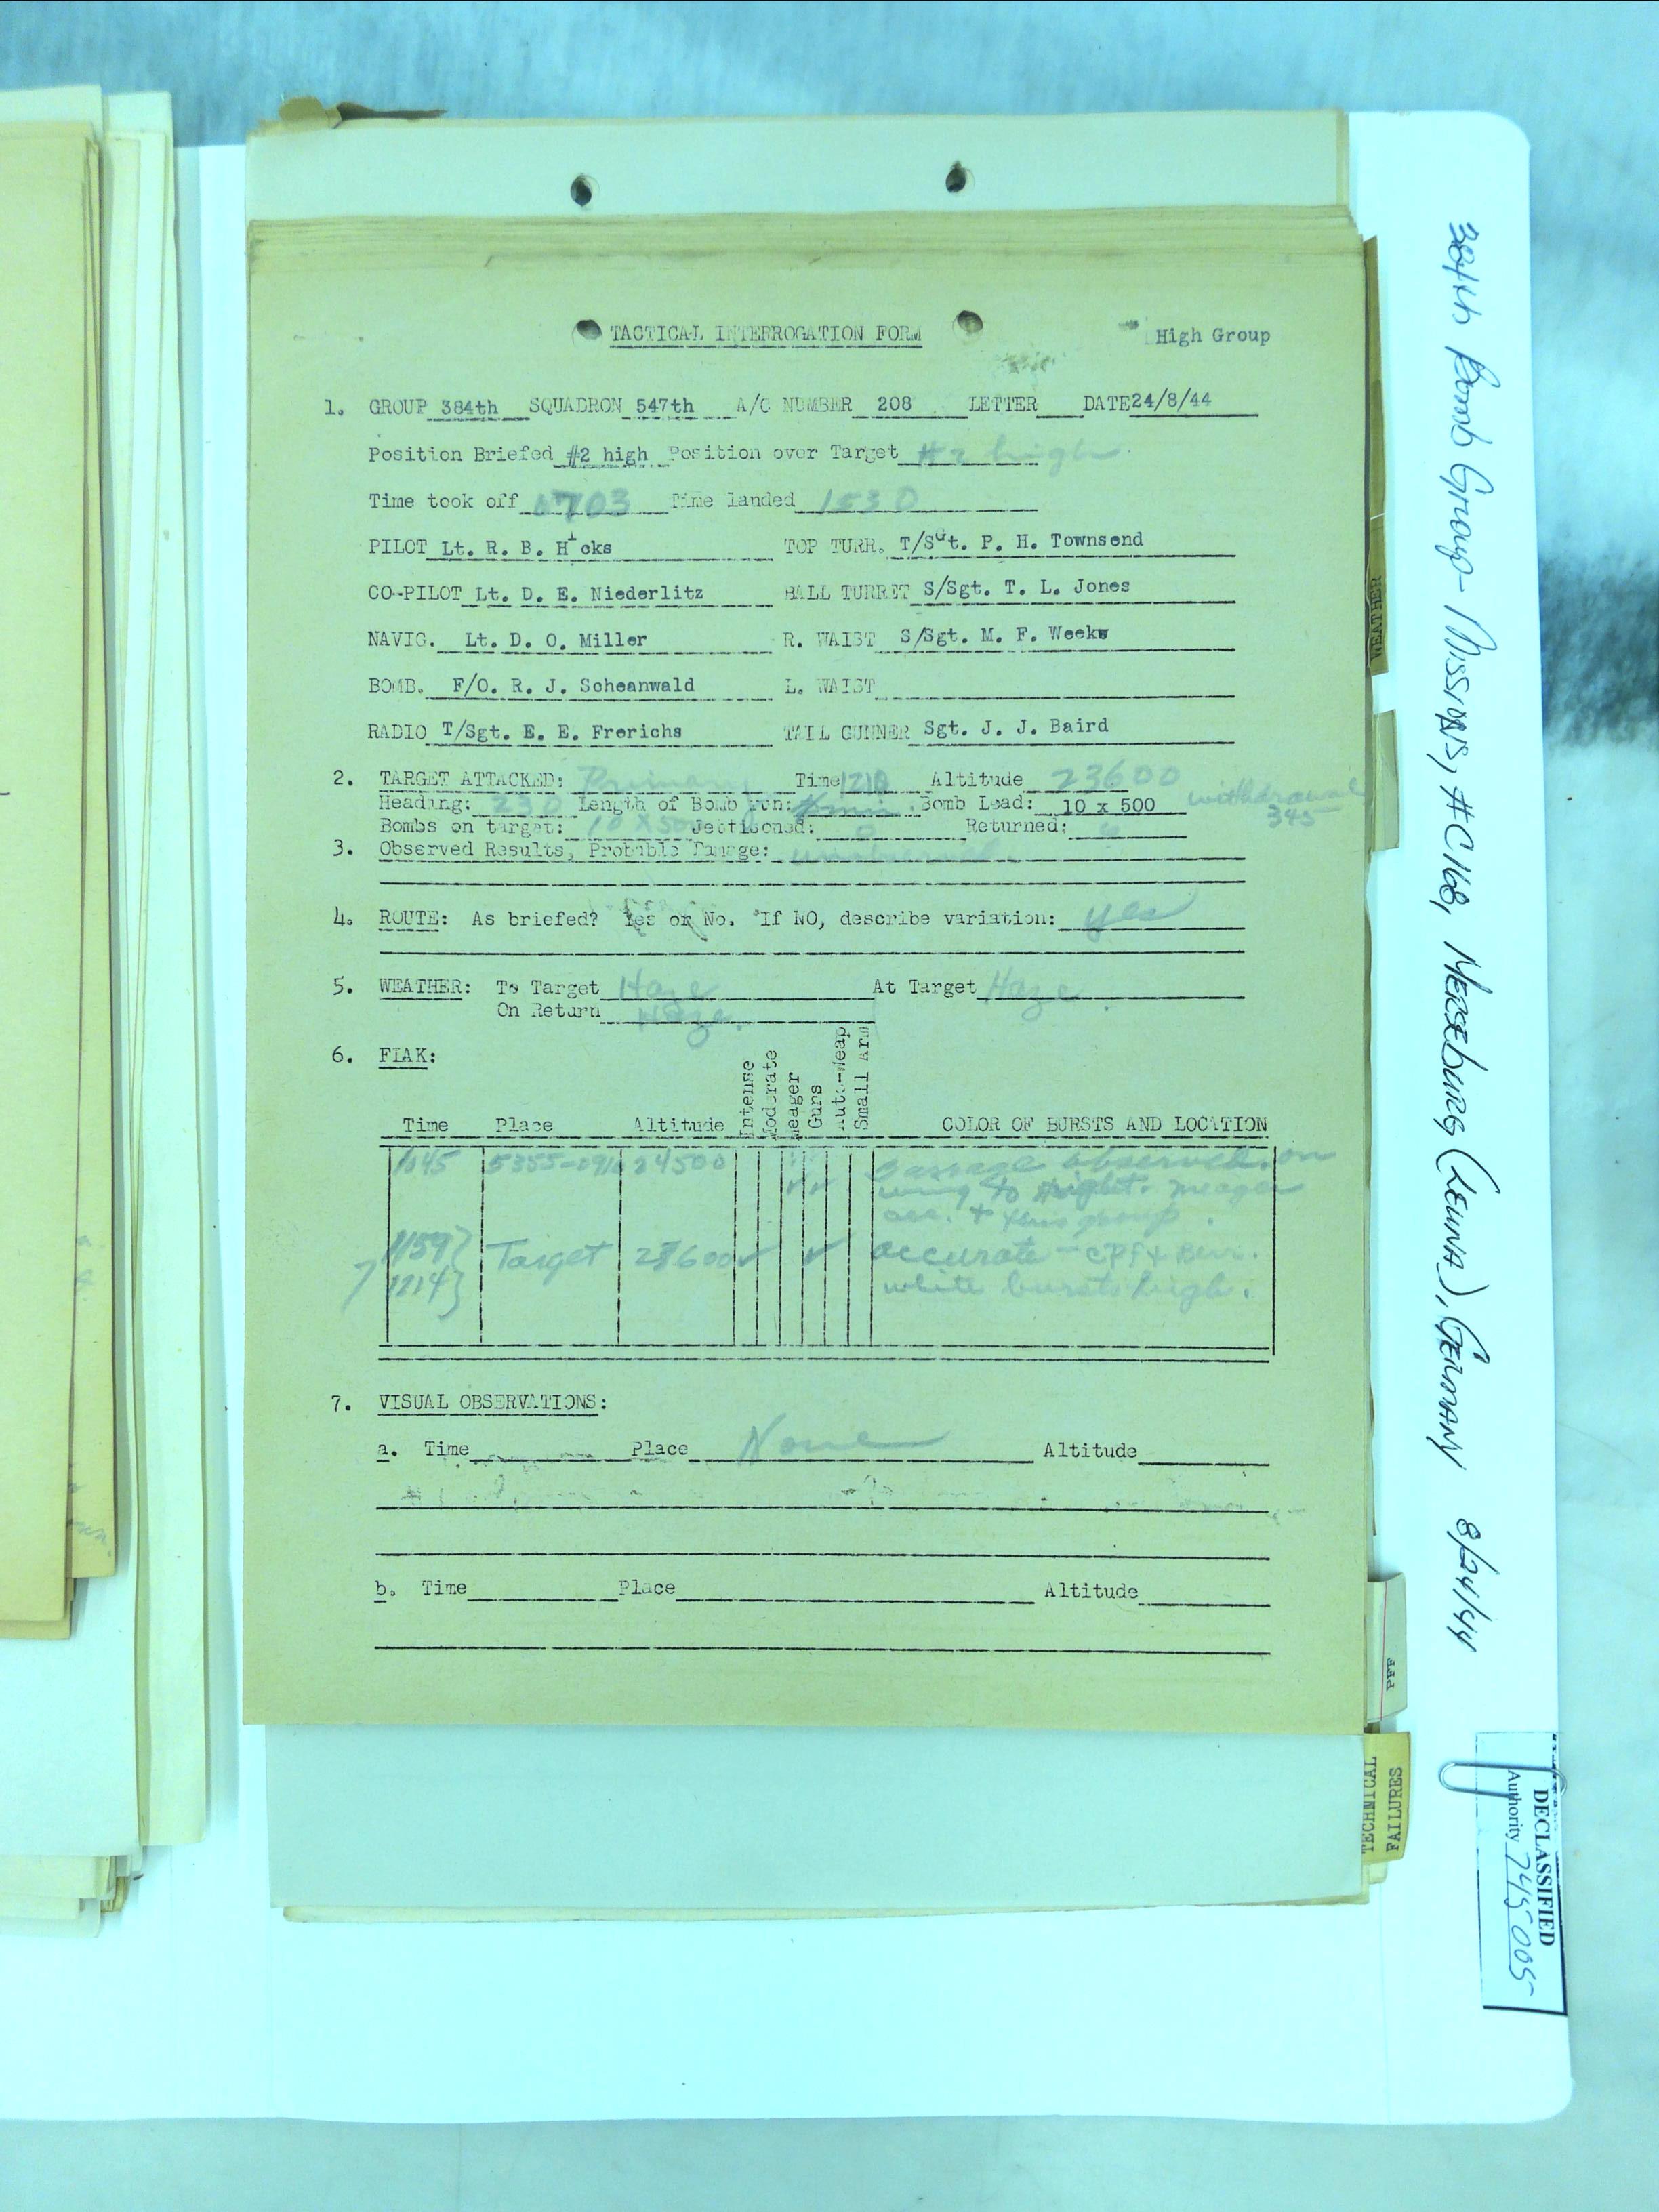 TACTICAL INTERROGATION FORM High Group
1. GROUP 384th SQUADRON 547th A/C NUMBER 208 LETTER DATE 24/8/44
Position Briefed #2 high Position over Target #2 high
Time took off 0703 Time landed 1530
PILOT Lt. R. B. Hicks TOP TURR. T/Sgt. P. H. Townsend
CO-PILOT Lt. D. E. Niederlitz BALL TURRET S/Sgt. T. L. Jones
NAVIG. Lt. D. O. Miller R. WAIST S/Sgt. M. F. Weeks
BOMB. F/O. R. J. Scheanwald L. WAIST
RADIO T/Sgt. E. E. Frerichs TAIL GUNNER Sgt. J. J. Baird
2. TARGET ATTACKED: Primary Time 1210 Altitude 23600
Heading: 230 Length of Bomb run: min. Bomb Load: 10 x 500 withdrawal
345
Bombs on target: 10 X 500 Jettisoned: 0 Returned:
3. Observed Results, Probable Damage: unobserved.
4. ROUTE: As briefed? Yes or No. If NO, describe variation: yes
5. WEATHER: To Target Haze At Target Haze.
On Return Haze.
6. FLAK:
Time Place Altitude Intense Moderate Meager Guns Auto-Weap Small Arm COLOR OF BURSTS AND LOCATION
1045 5355-0910 24500 ✓ ✓ barrage observed on
wing to right. meager
acc. + this group.
1159 Target 23600 ✓ ✓ accurate - CPF + Barr.
1214 white bursts high.
7. VISUAL OBSERVATIONS:
a. Time Place None Altitude
b. Time Place Altitude
384th Bomb Group - Missions, #C168, MERSEBURG (LEUNA), GERMANY 8/24/44
WEATHER
PFF
TECHNICAL
FAILURES
DECLASSIFIED
Authority 745005